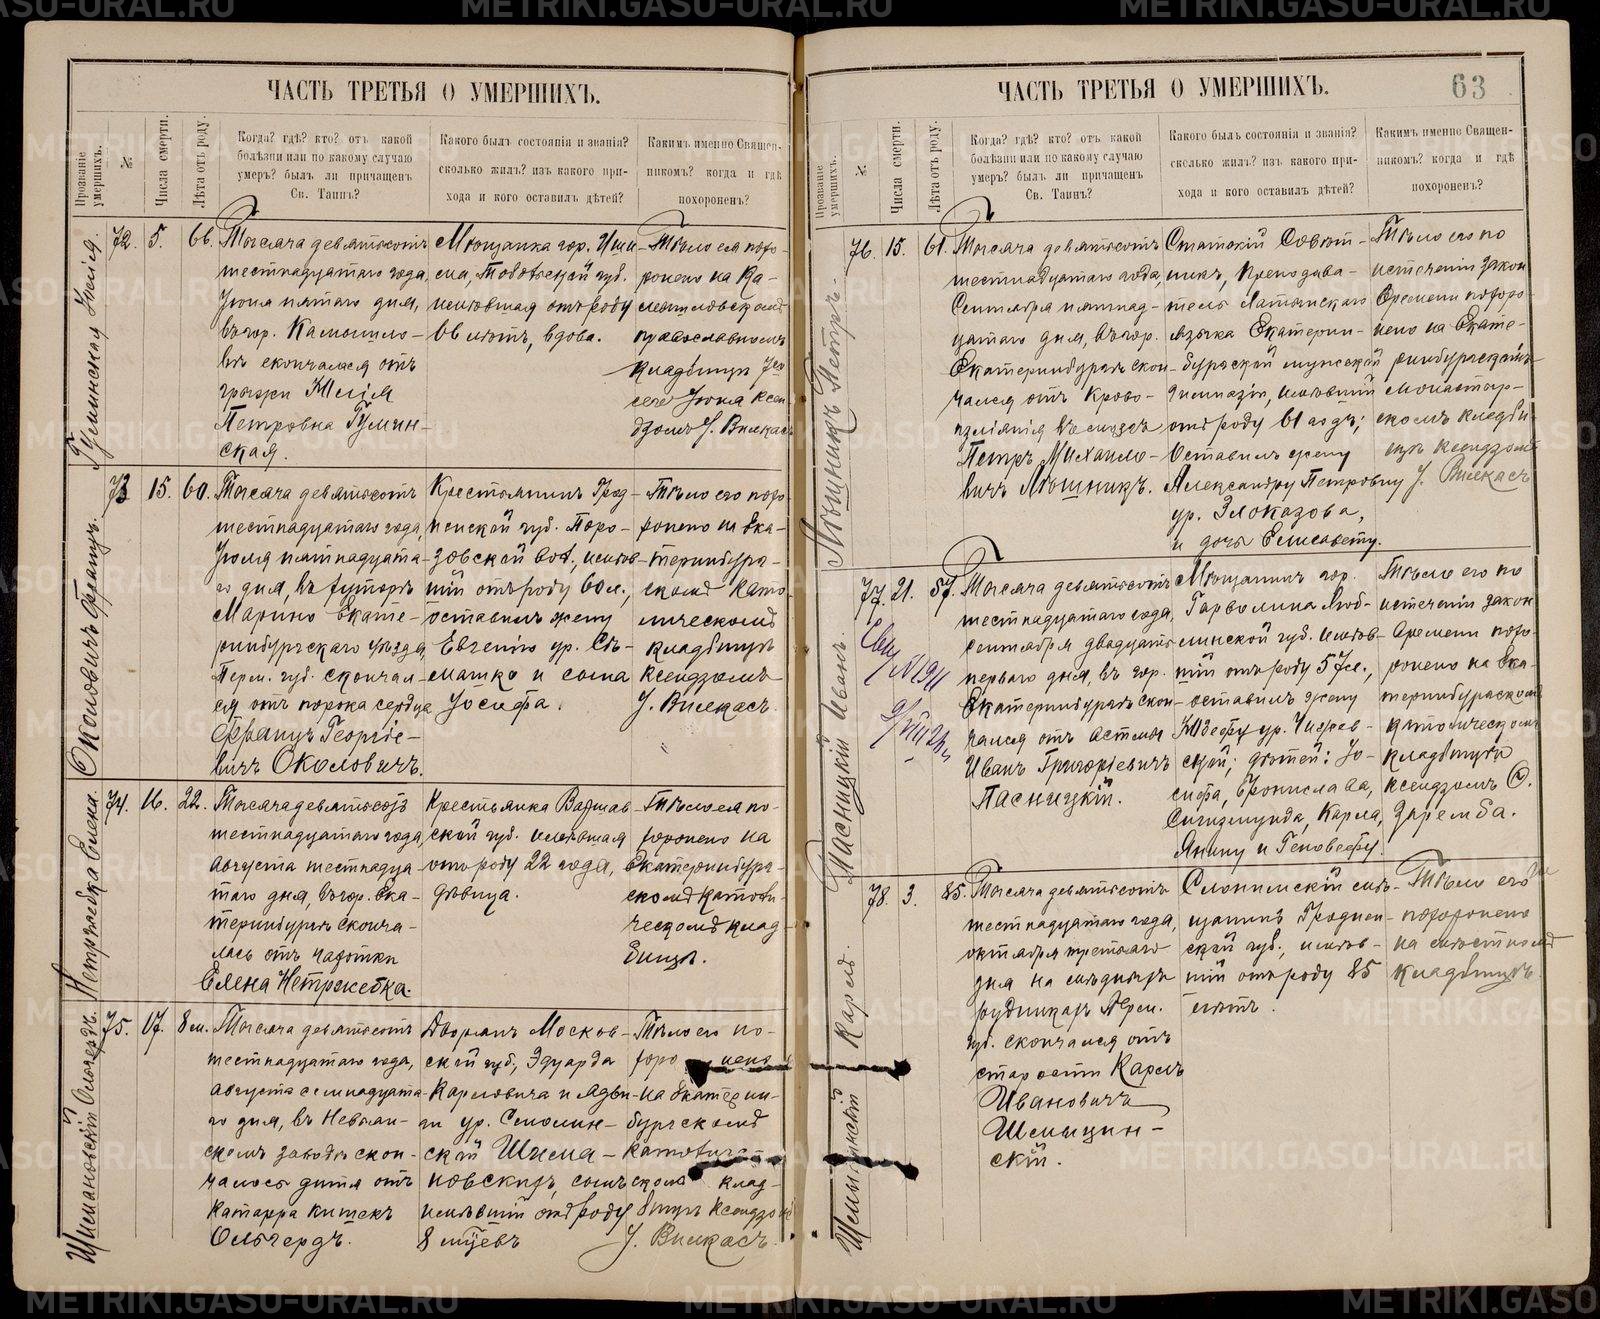 ЧАСТЬ ТРЕТЬЯ О УМЕРШИХЪ.
Прозваніе умершихъ.
№
Числа смерти.
Лѣта отъ роду.
Когда? гдѣ? кто? отъ какой
болѣзни или по какому случаю
умеръ? былъ ли причащенъ
Св. Таинъ?
Какого былъ состоянія и званія?
сколько жилъ? изъ какого при-
хода и кого оставилъ дѣтей?
Какимъ именно Священ-
никомъ? когда и гдѣ
похороненъ?
Гуминская Юлія.
72.
5.
66.
Тысяча девятьсотъ
шестнадцатаго года,
Іюня пятаго дня,
въ гор. Камышло-
въ скончалася отъ
грыжи Юлія
Петровна Гумин-
ская.
Мѣщанка гор. Иши-
ма, Тобольской губ.
имѣвшая отъ роду
66 лѣтъ, вдова.
Тѣло ея похо-
ронено на Ка-
мышловскомъ
православномъ
кладбищѣ 7го
сего Іюня Ксен-
дзомъ І. Вилкасъ
Околовичъ Францъ.
73
15.
60.
Тысяча девятьсотъ
шестнадцатаго года,
Іюля пятнадцата-
го дня, въ хуторѣ
Марино Екате-
ринбургскаго уѣзда,
Перм. губ. скончал-
ся отъ порока сердца
Францъ Георгіе-
вичъ Околовичъ.
Крестьянинъ Грод-
ненской губ. Поро-
зовской вол., имѣв-
шій отъ роду 60 л.,
оставилъ жену
Евгенію ур. Сѣ-
машко и сына
Іосифа.
Тѣло его похо-
ронено на Ека-
теринбург-
скомъ Като-
лическомъ
кладбищѣ
Ксендзомъ
І. Вилкасъ.
Петржебка Елена.
74.
16.
22.
Тысяча девятьсотъ
шестнадцатаго года,
Августа шестнадца-
таго дня, въ гор. Ека-
теринбургѣ сконча-
лась отъ чахотки
Елена Петржебка.
Крестьянка Варшав-
ской губ. имѣвшая
отъ роду 22 года,
дѣвица.
Тѣло ея по-
хоронено на
Екатеринбург-
скомъ Католи-
ческомъ клад-
бищѣ.
Шимановскій Ольгердъ.
75.
17.
8 м.
Тысяча девятьсотъ
шестнадцатаго года,
Августа семнадцата-
го дня, въ Невьян-
скомъ заводѣ скон-
чалось дитя отъ
катарра кишекъ
Ольгердъ.
Дворянъ Москов-
ской губ., Эдуарда
Карловича и Ядви-
ги ур. Смолин-
ской Шима-
новскихъ, сынъ
имѣвшій отъ роду
8 м-цевъ
Тѣло его по-
хоро нено
на Екатерин-
бургскомъ
католиче-
скомъ клад-
бищѣ Ксендзомъ
І. Вилкасъ.
ЧАСТЬ ТРЕТЬЯ О УМЕРШИХЪ.
63
Прозваніе умершихъ.
№
Числа смерти.
Лѣта отъ роду.
Когда? гдѣ? кто? отъ какой
болѣзни или по какому случаю
умеръ? былъ ли причащенъ
Св. Таинъ?
Какого былъ состоянія и званія?
сколько жилъ? изъ какого при-
хода и кого оставилъ дѣтей?
Какимъ именно Священ-
никомъ? когда и гдѣ
похороненъ?
Мѣшникъ Петръ.
76.
15.
61.
Тысяча девятьсотъ
шестнадцатаго года,
Сентября пятнад-
цатаго дня, въ гор.
Екатеринбургѣ скон-
чался отъ Крово-
изліянія въ мозгъ
Петръ Михайло-
вичъ Мѣшникъ.
Статскій Совѣт-
никъ, Преподава-
тель Латинскаго
языка Екатерин-
бургской мужской
Гимназіи, имѣвшій
отъ роду 61 годъ;
Оставилъ жену
Александру Петровну
ур. Злоказова,
и дочь Елисавету.
Тѣло его по
истеченіи закон
времени похоро-
нено на Екате-
ринбургскомъ
монастыр-
скомъ кладби-
щѣ Ксендзомъ
І. Вилкасъ
Пасницкій Иванъ.
77.
21.
57.
Тысяча девятьсотъ
шестнадцатаго года,
сентября двадцать
перваго дня, въ гор.
Екатеринбургѣ скон-
чался отъ астмы
Иванъ Григоріевичъ
Пасницкій.
Мѣщанинъ гор.
Гарволина Люб-
линской губ. имѣв-
шій отъ роду 57 л.,
оставилъ жену
Юзефу ур.
ской; дѣтей: Іо-
сифа, Бронислава,
Сигизмунда, Карла,
Янину и Геновефу.
Тѣло его по
истеченіи закон
времени похо-
ронено на Ека-
теринбургскомъ
католическомъ
кладбищѣ
Ксендзомъ
Заремба.
Шемыцинскій Карлъ.
78.
3.
85.
Тысяча девятьсотъ
шестнадцатаго года,
октября третьяго
дня на мѣдныхъ
рудникахъ Перм.
губ. скончался отъ
старости Карлъ
Ивановичъ
Шемыцин-
скій.
Слонимскій мѣ-
щанинъ Гроднен-
ской губ., имѣв-
шій отъ роду 85
лѣтъ.
Тѣло его
похоронено
на мѣстномъ
кладбищѣ.
METRIKI.GASO-URAL.RU